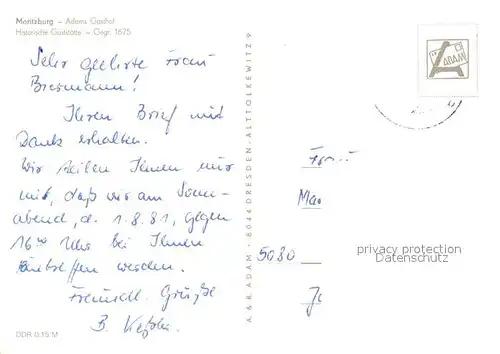 Moritzburg – Adams Gasthof
Historische Gaststätte – Gegr. 1675
Sehr geehrte Frau
Biesmann!
Ihren Brief mit
Dank erhalten.
Wir teilen Ihnen nur
mit, daß wir am Sonn-
abend, d. 1.8.81, gegen
16⁰⁰ Uhr bei Ihnen
eintreffen werden.
Freundl. Grüße
B.
DDR 0,15 M
A. & R. ADAM - 8044 DRESDEN - ALTTOLKEWITZ 9
ADAM
5080
privacy protection
Datenschutz